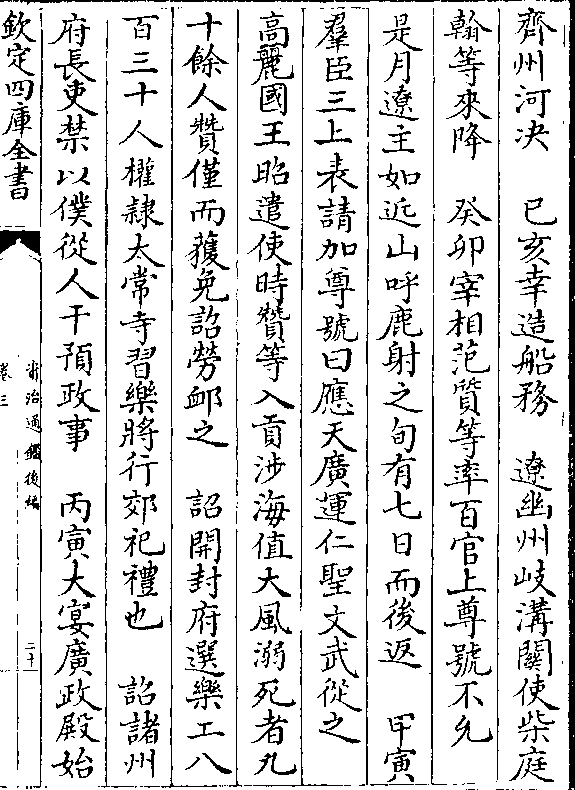 齊州河决　已亥幸造船務　遼幽州岐溝關使柴庭
翰等來降　癸卯宰相范質等率百官上尊號不允
是月遼主如近山呼鹿射之旬有七日而後返　甲寅
羣臣三上表請加尊號曰應天廣運仁聖文武從之
高麗國王昭遣使時贊等入貢涉海值大風溺死者九
十餘人贊僅而獲免詔勞䘏之　詔開封府選樂工八
百三十人權隸太常寺習樂將行郊祀禮也　詔諸州
府長吏禁以僕從人干預政事　丙寅大宴廣政殿始
欽定四庫全書
資治通鑑後編
卷三
二十